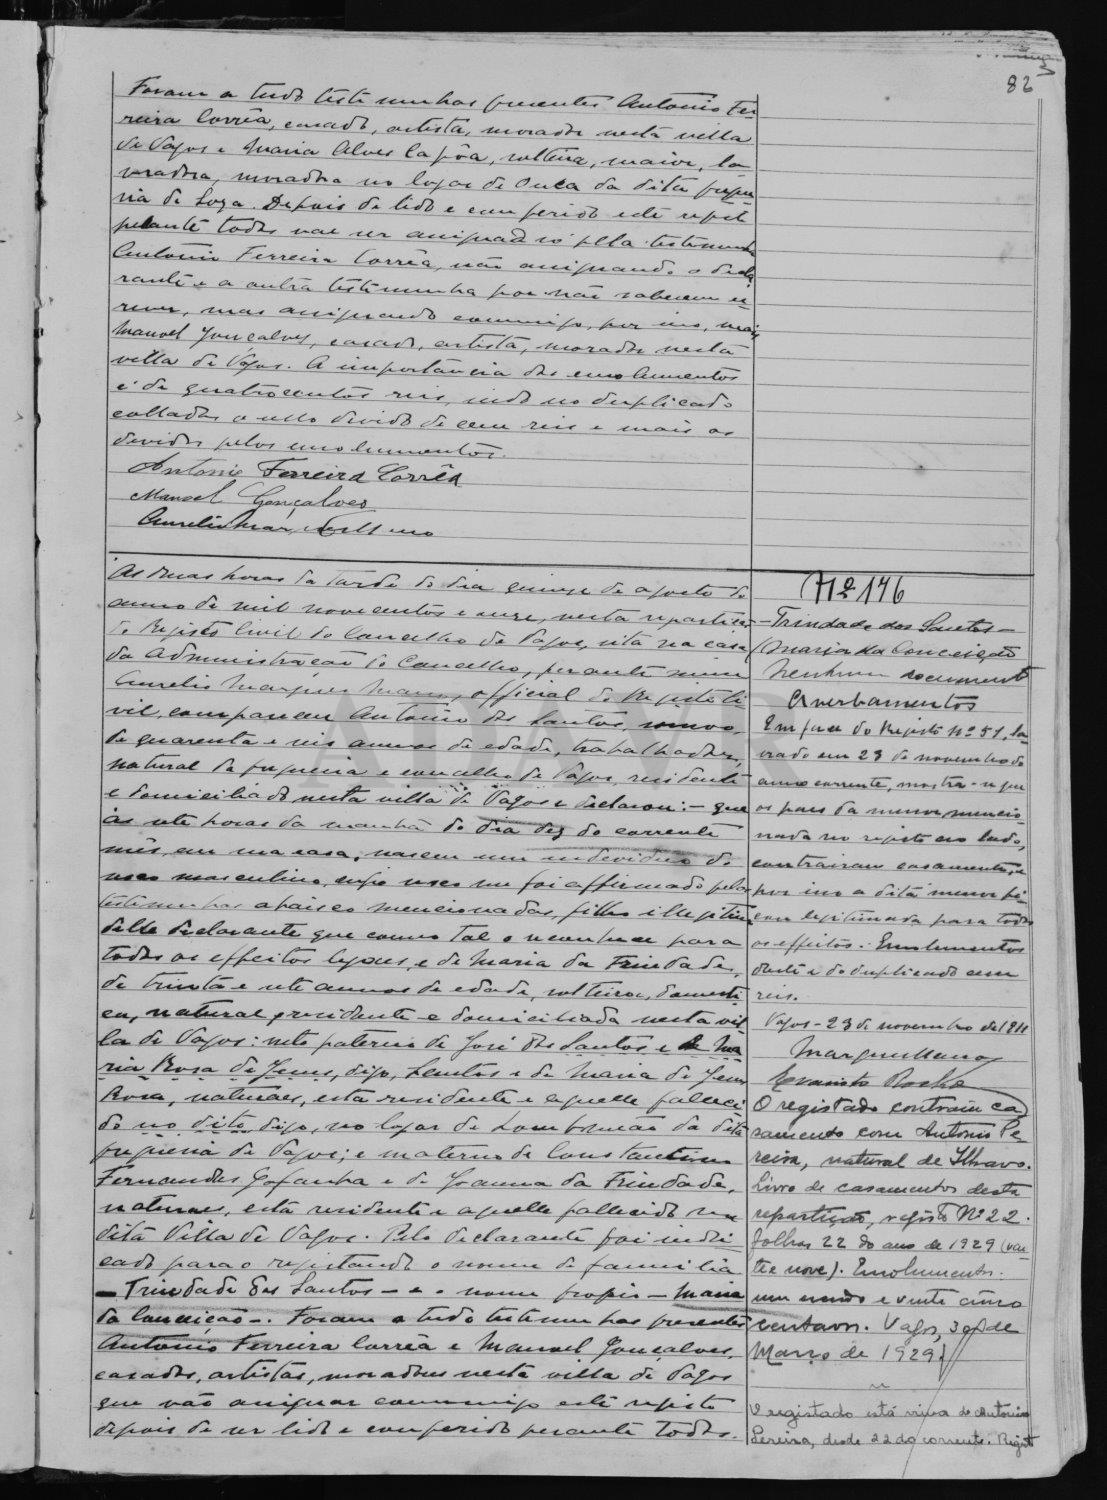 82
Foram a tudo testemunhas presentes Antonio Fer
reira Corrêa, casado, artista, morador nesta villa
de Vagos e Maria Alves Capôa, solteira, maior, la
vradora, moradora no logar de Ouca da dita fregue
zia de Soza. Depois de lido e conferido este registo
perante todos vae ser assignado só pela testemunha
Antonio Ferreira Corrêa, não assignando o decla
rante e a outra testemunha por não saberem es
crever, mas assignando commigo, por isso, mais
Manoel Gonçalves, casado, artista, morador nesta
villa de Vagos. A importancia dos emolumentos
é de quatrocentos reis, indo no duplicado
collados o sello devido de cem reis e mais os
devidos pelos emolumentos.
Antonio Ferreira Corrêa
Manoel Gonçalves
Aurelio Mar
As duas horas da tarde do dia quinze de agosto do
anno de mil novecentos e onze, nesta repartição
do Registo Civil do Concelho de Vagos, sita na casa
da Administração do Concelho, perante mim
Aurelio Marques Mano, official do Registo Ci
vil, compareceu Antonio dos Santos,
de quarenta e seis annos de edade, trabalhador,
natural da freguezia e concelho de Vagos, residente
e domiciliado nesta villa de Vagos e declarou: - que
ás sete horas da manhã do dia dez do corrente
mês, em sua casa, nasceu um individuo do
sexo masculino, cujo sexo me foi affirmado pelas
testemunhas abaixo mencionadas, filho illegitimo
delle declarante que como tal o reconhece para
todos os effeitos legaes, e de Maria da Trindade,
de trinta e sete annos de edade, solteira, domesti
ca, natural, residente e domiciliada nesta vil
la de Vagos: neto paterno de José dos Santos e de Ma
ria Rosa de Jesus, digo, Santos e de Maria de Jesus
Rosa, naturaes, esta residente e aquelle falleci
do no dito, digo, no logar de Lombomeão da dita
freguezia de Vagos; e materno de Constantino
Fernandes Gafanha e de Joanna da Trindade,
naturaes, esta residente e aquelle fallecido na
dita Villa de Vagos. Pelo declarante foi indi
cado para o registando o nome de familia
- Trindade dos Santos - e o nome proprio - Maria
da Conceição -. Foram a tudo testemunhas presentes
Antonio Ferreira Corrêa e Manoel Gonçalves,
casados, artistas, moradores nesta villa de Vagos
que vão assignar commigo este registo
depois de ser lido e conferido perante todos.
Nº 146
- Trindade dos Santos -
(Maria da Conceição
Nenhum documento
Averbamentos
Em face do Registo Nº 51, la-
vrado em 23 de novembro do
anno corrente, mostra-se que
os paes da menor mencio-
nada no registo ao lado,
contrairam casamento, e
por isso a dita menor fi-
cou legitimada para todos
os effeitos. Emolumentos
deste e do duplicado cem
reis.
Vagos - 23 de novembro de 1911
Marques Mano
Evaristo Rocha
O registado contraíu ca-
samento com Antonio Pe-
reira, natural de Ilhavo.
Livro de casamentos desta
repartição, registo Nº 22.
folhas 22 do ano de 1929 (vin-
te e nove). Emolumentos:
um escudo e vinte cinco
centavos. Vagos, 30 de
Março de 1929.
O registado está viuva de Antonio
Pereira, desde 22 do corrente. Registo
ADAVR